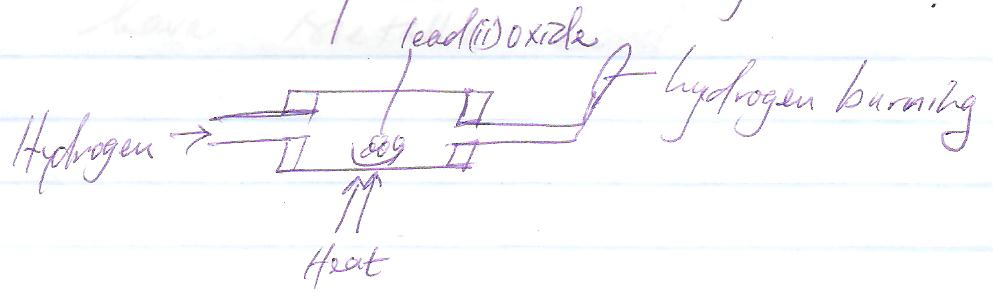 lead(ii)oxide
hydrogen burning
Hydrogen
Heat